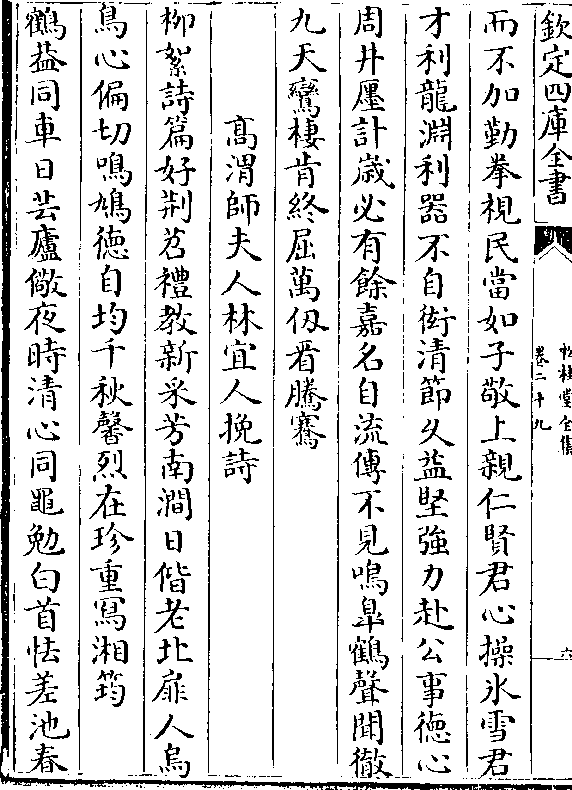 欽定四庫全書
松桂堂全集
卷二十九
六
而不加勤拳視民當如子敬上親仁賢君心操氷雪君
才利龍淵利器不自衒清節久益堅強力赴公事徳心
周井㕓計歳必有餘嘉名自流傳不見鳴臯鶴聲聞徹
九天鸞棲肯終屈萬仭看騰騫
髙渭師夫人林宜人挽詩
柳絮詩篇好荆苕禮教新采芳南澗日偕老北扉人烏
鳥心偏切鳴鳩徳自均千秋馨烈在珍重冩湘筠
鶴葢同車日芸廬儆夜時清心同黽勉白首怯差池春